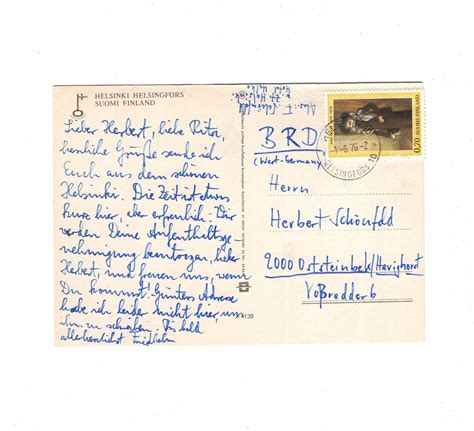 HELSINKI HELSINGFORS
SUOMI FINLAND
Lieber Herbert, liebe Rita,
herzliche Grüße sende ich
Euch aus dem schönen
Helsinki. Die Zeit ist etwas
kurz hier, aber erfreulich. Wir
werden Deine Aufenthaltsge-
nehmigung beantragen, lieber
Herbert, und freuen uns, wenn
Du kommst. Günters Adresse
habe ich leider nicht hier, um
ihm zu schreiben. Bis bald
allerherzlichst Friedhelm
BRD
(West-Germany)
Herrn
Herbert Schönfeld
2000 Oststeinbek/Havighorst
Voßredder 6
0,70 SUOMI FINLAND
HELSINGFORS 10
139